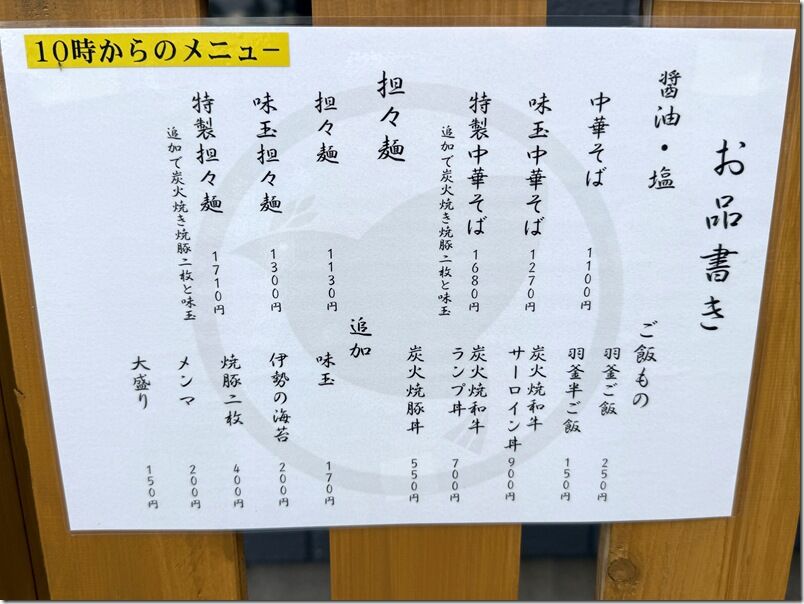 10時からのメニュー
お品書き
醤油・塩
中華そば 1100円
味玉中華そば 1270円
特製中華そば 1680円
追加で炭火焼き焼豚二枚と味玉
担々麺
担々麺 1130円
味玉担々麺 1300円
特製担々麺 1710円
追加で炭火焼き焼豚二枚と味玉
ご飯もの
羽釜ご飯 250円
羽釜半ご飯 150円
炭火焼和牛
サーロイン丼 900円
炭火焼和牛
ランプ丼 700円
炭火焼豚丼 550円
追加
味玉 170円
伊勢の海苔 200円
焼豚二枚 400円
メンマ 200円
大盛り 150円